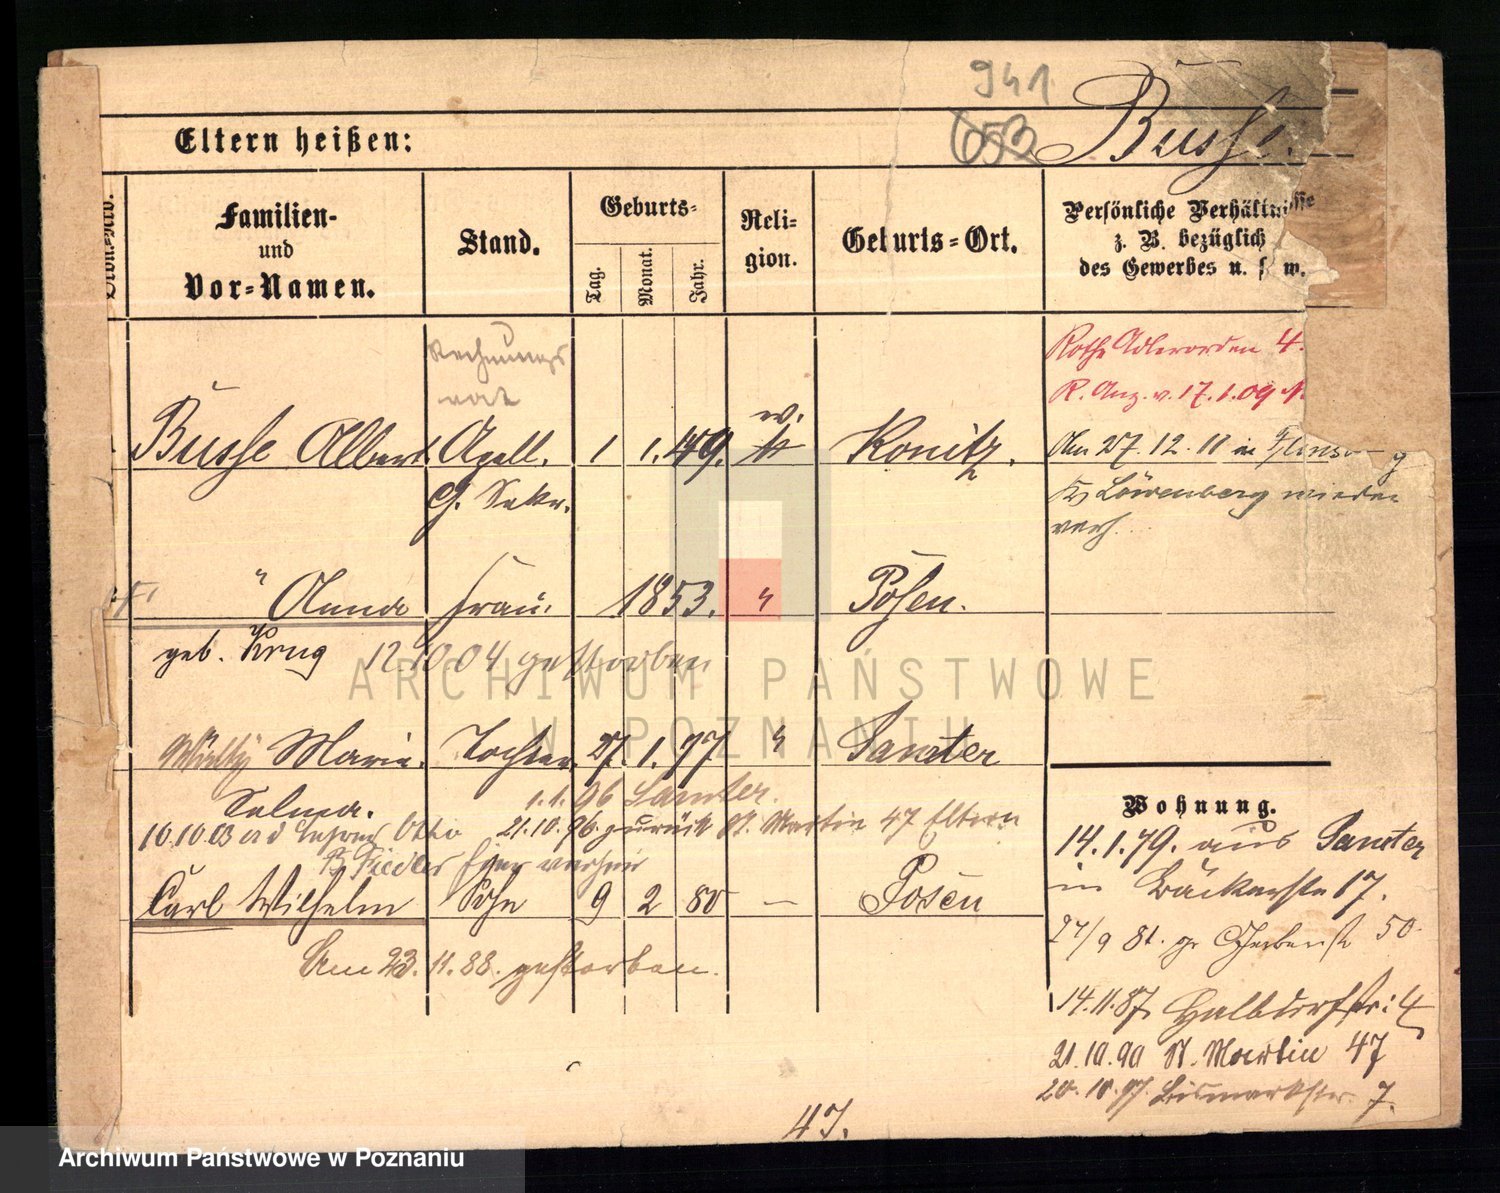 941
653
Busse.
Eltern heißen:
Familien- und Vor-Namen.
Stand.
Geburts-
Tag.
Monat.
Jahr.
Reli-
gion.
Geburts-Ort.
Persönliche Verhältnisse
z. B. bezüglich
des Gewerbes u. s. w.
Rechnungs
rat
Rothe Adlerorden 4.
R. Anz. v. 17.1.09
Busse Albert Apell. 1 1. 49. Konitz.
G. Sekr.
Am 27. 12. 11 in
Löwenberg wieder
verh.
" Anna Frau. 1853. " Posen.
geb. Krug 12.10.04 gestorben
Marie Tochter 27. 1. 77 " Samter
Selma.
1.1.96 Samter.
10.10.03 Otto 21.10.96. zurück St. Martin 47 Eltern
Fiedler
Carl Wilhelm Sohn 9 2 80 — Posen
Am 23. 11. 88. gestorben.
Wohnung.
14.1.79. aus Samter
in Bäckerstr 17.
27/9 81. Gerberstr 50.
14.11.87. Halbdorfstr: 4
21.10.90 St. Martin 47
20.10.97. Bismarckstr. 7.
47.
ARCHIWUM PAŃSTWOWE
W POZNANIU
Archiwum Państwowe w Poznaniu